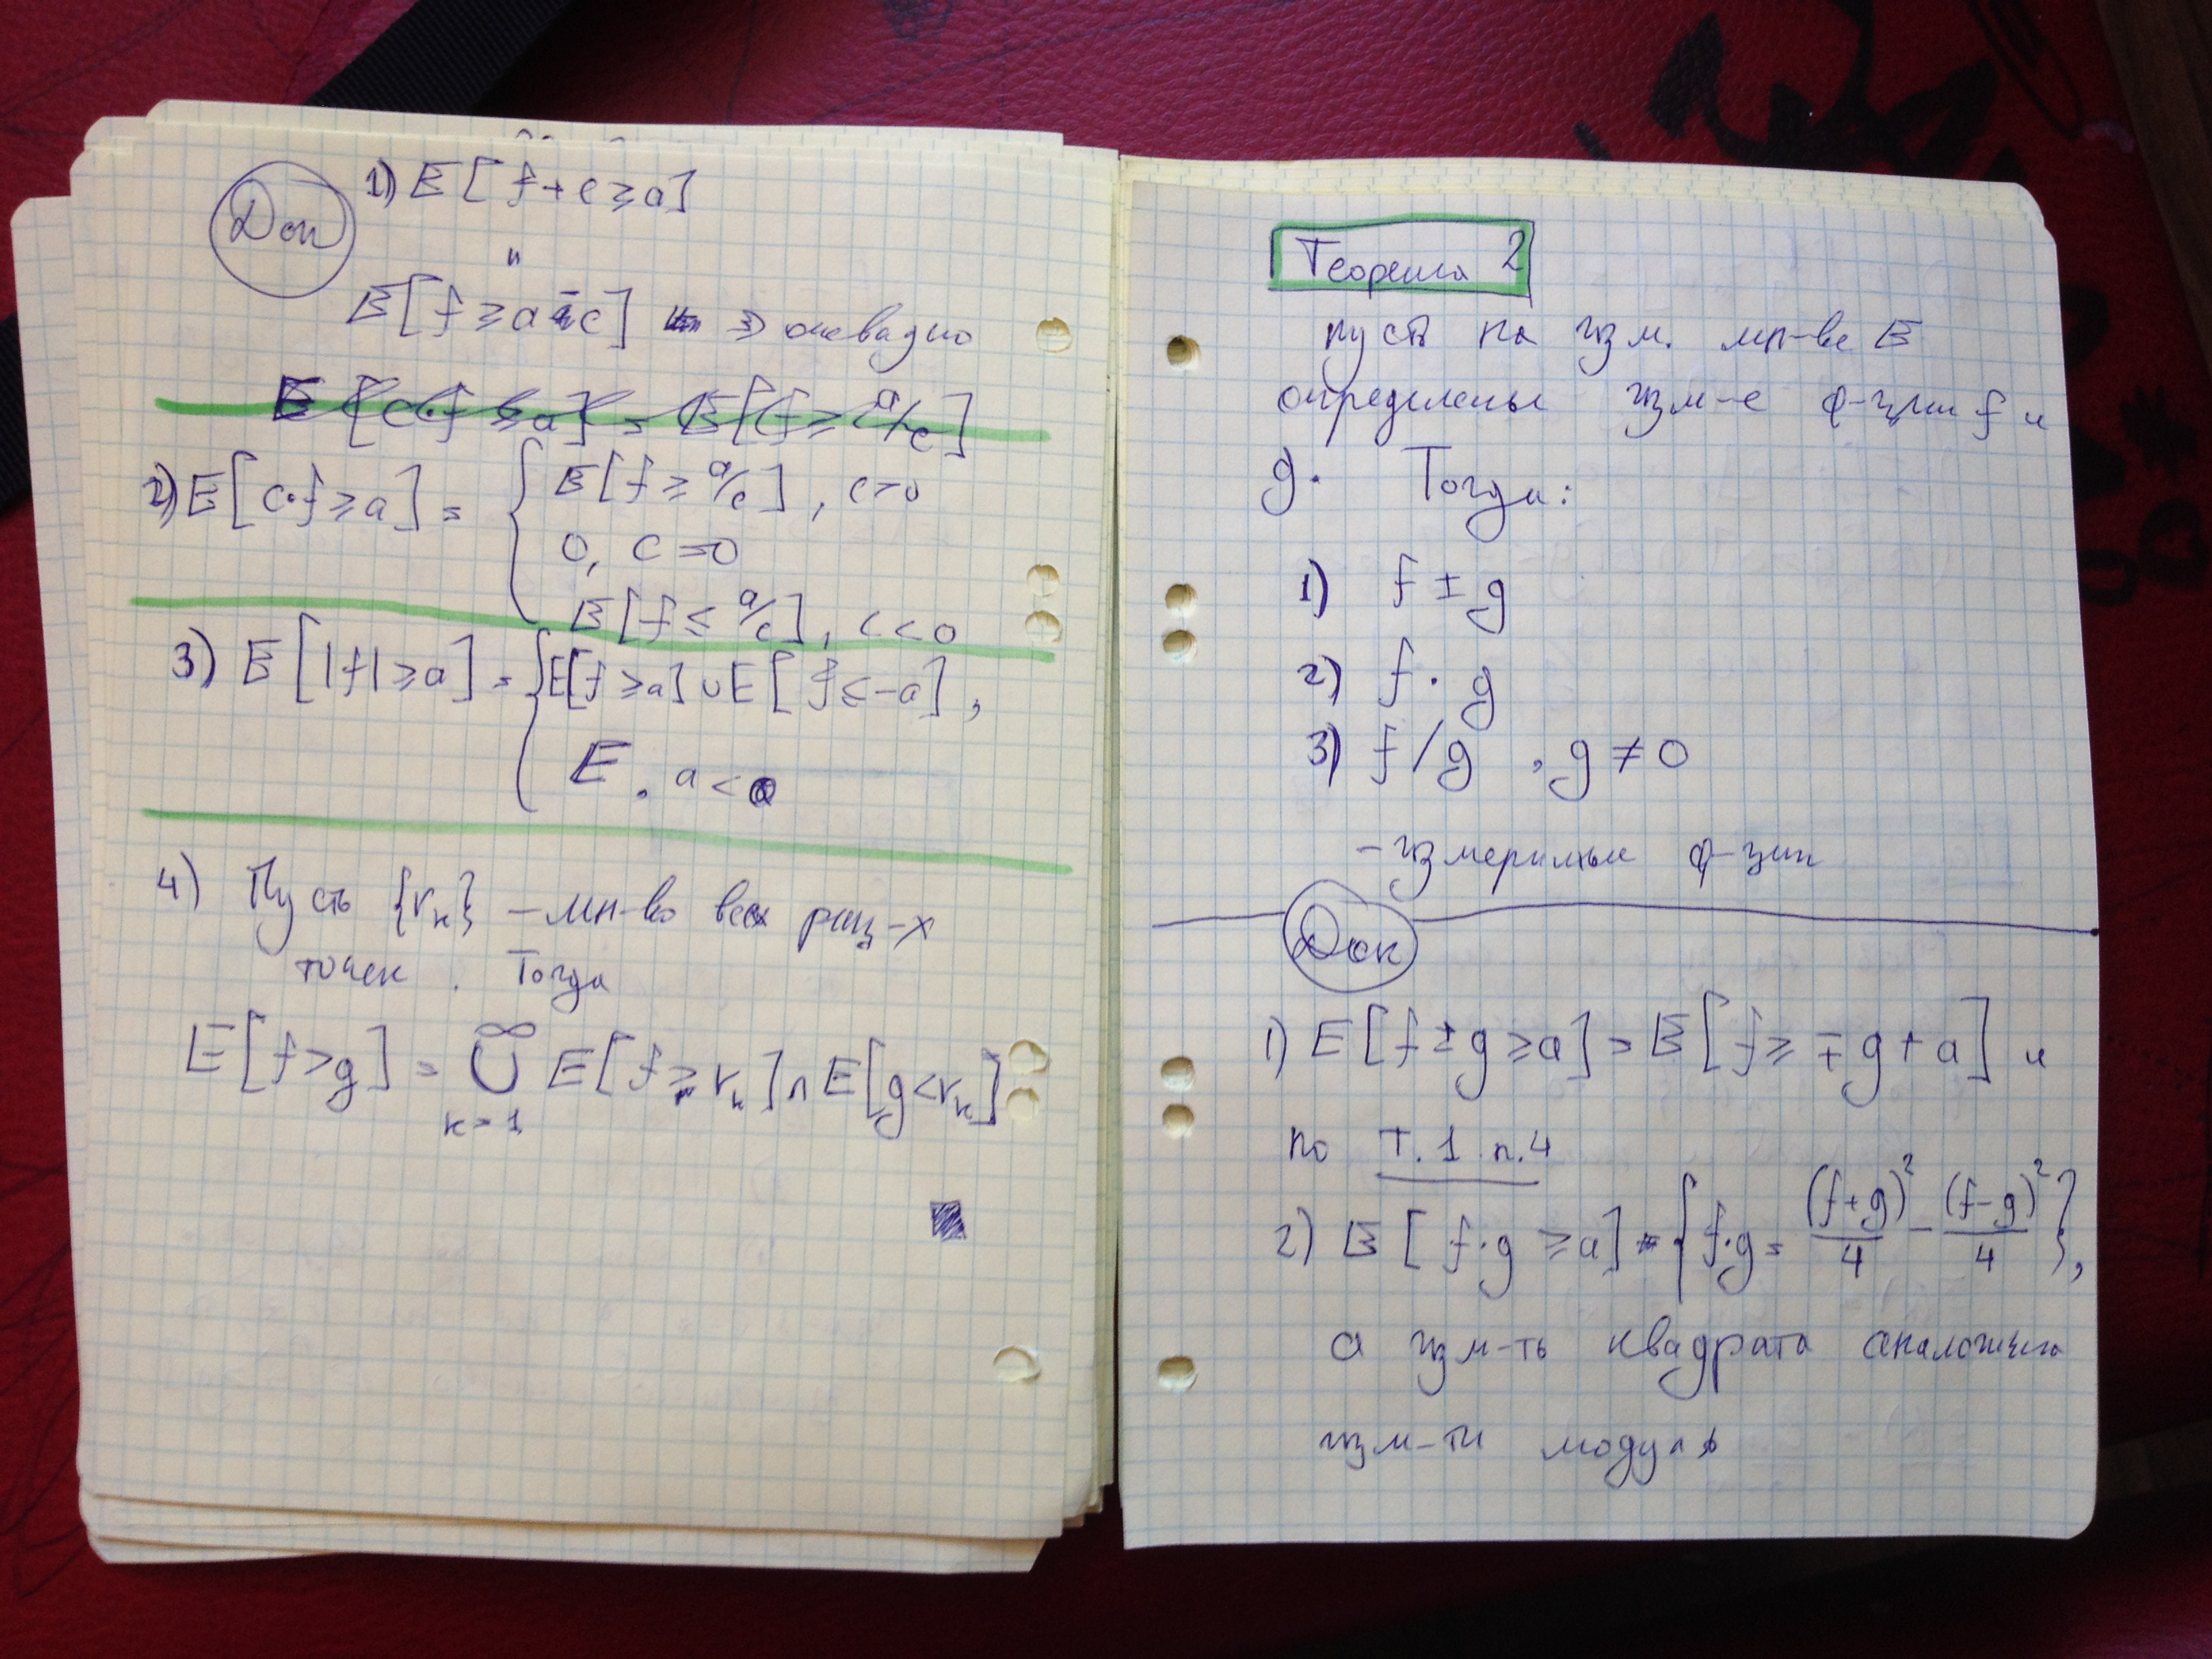 Док
1) E[f+c≥a]
"
E[f≥a-c] ⇒ очевидно
E[c·f≥a] = E[f≥a/c]
2) E[c·f≥a] = { E[f≥a/c], c>0
0, c=0
E[f≤a/c], c<0
3) E[|f|≥a] = { E[f≥a]∪E[f≤-a],
E, a<0
4) Пусть {rₖ} – мн-во всех рац-х
точек. Тогда
E[f>g] = ∞∪k=1 E[f≥rₖ]∩E[g<rₖ]
Теорема 2
пусть на изм. мн-ве E
определены изм-е ф-ции f и
g. Тогда:
1) f±g
2) f·g
3) f/g, g≠0
– измеримые ф-ции
Док
1) E[f±g≥a] = E[f≥∓g+a] и
по Т.1 п.4
2) E[f·g≥a] = {f·g = (f+g)²/4 – (f-g)²/4},
а изм-ть квадрата аналогична
изм-ти модуля